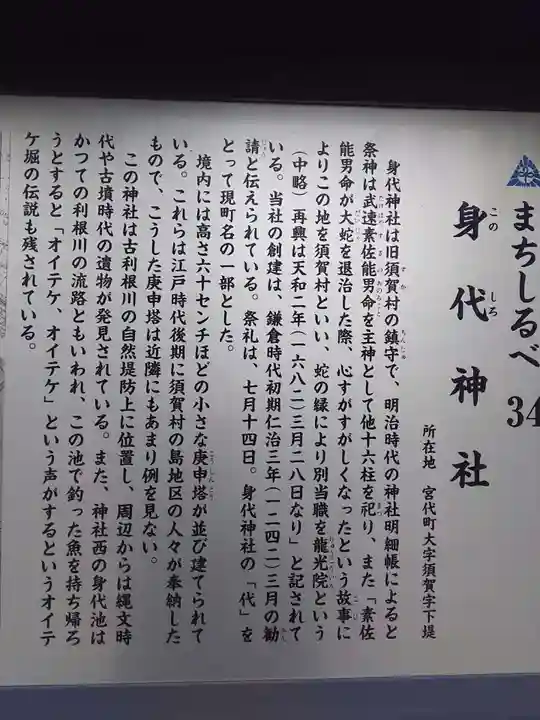 まちしるべ 34
身代神社
このしろ
所在地 宮代町大字須賀字下堤
身代神社は旧須賀村の鎮守で、明治時代の神社明細帳によると
祭神は武速素佐能男命を主神として他十六柱を祀り、また「素佐
能男命が大蛇を退治した際、心すがすがしくなったという故事に
よりこの地を須賀村といい、蛇の縁により別当職を龍光院という
（中略）再興は天和二年（一六八二）三月二八日なり」と記されて
いる。当社の創建は、鎌倉時代初期仁治三年（一二四二）三月の勧
請と伝えられている。祭礼は、七月十四日。身代神社の「代」を
とって現町名の一部とした。
境内には高さ六十センチほどの小さな庚申塔が並び建てられて
いる。これらは江戸時代後期に須賀村の島地区の人々が奉納した
もので、こうした庚申塔は近隣にもあまり例を見ない。
この神社は古利根川の自然堤防上に位置し、周辺からは縄文時
代や古墳時代の遺物が発見されている。また、神社西の身代池は
かつての利根川の流路ともいわれ、この池で釣った魚を持ち帰ろ
うとすると「オイテケ、オイテケ」という声がするというオイテ
ケ堀の伝説も残されている。